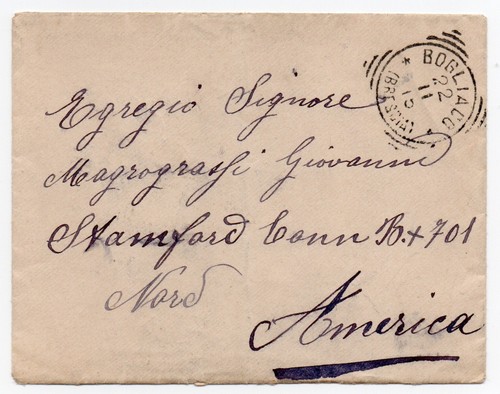 Egregio Signore
Magrograssi Giovanni
Stamford Conn B.x 701
Nord
America
BOGLIACO
22
11
15
* (BRESCIA) *